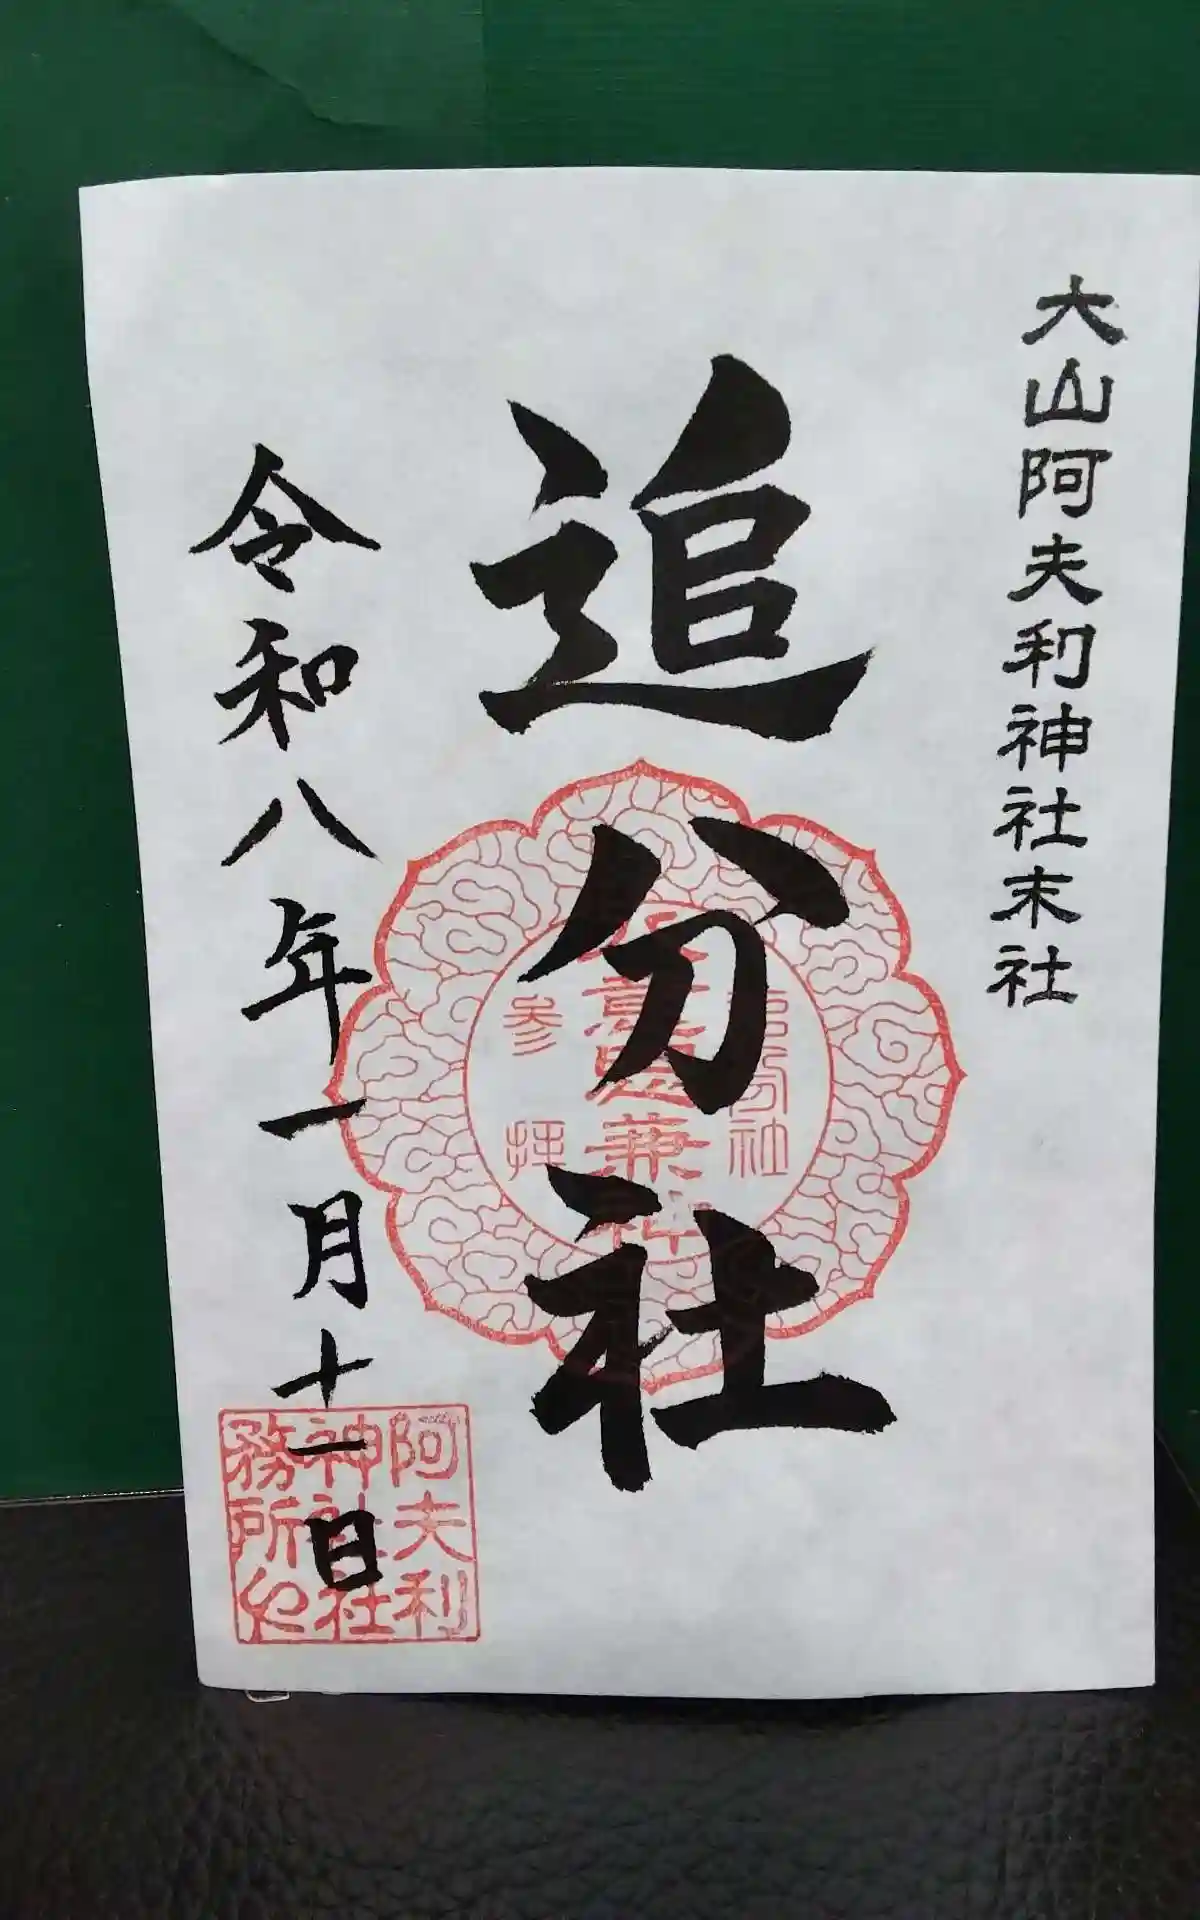 大山阿夫利神社末社
追分社
八意思兼神
参拝
令和八年一月十一日
阿夫利
神社社
務所之